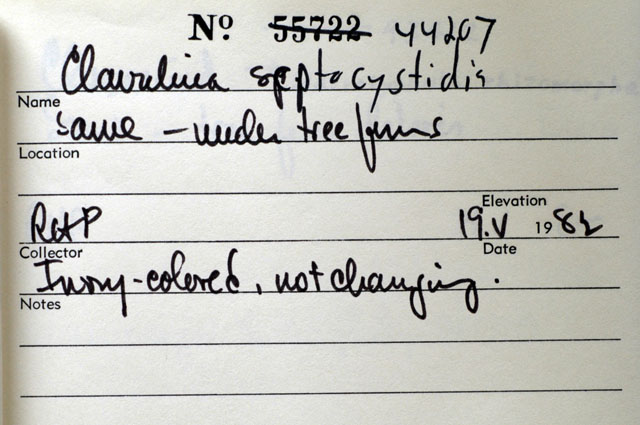 Nº 55722 44207
Clavulina septocystidis
Name
same – under tree ferns
Location
Elevation
R&P 19.V 1982
Collector Date
Ivory-colored, not changing.
Notes